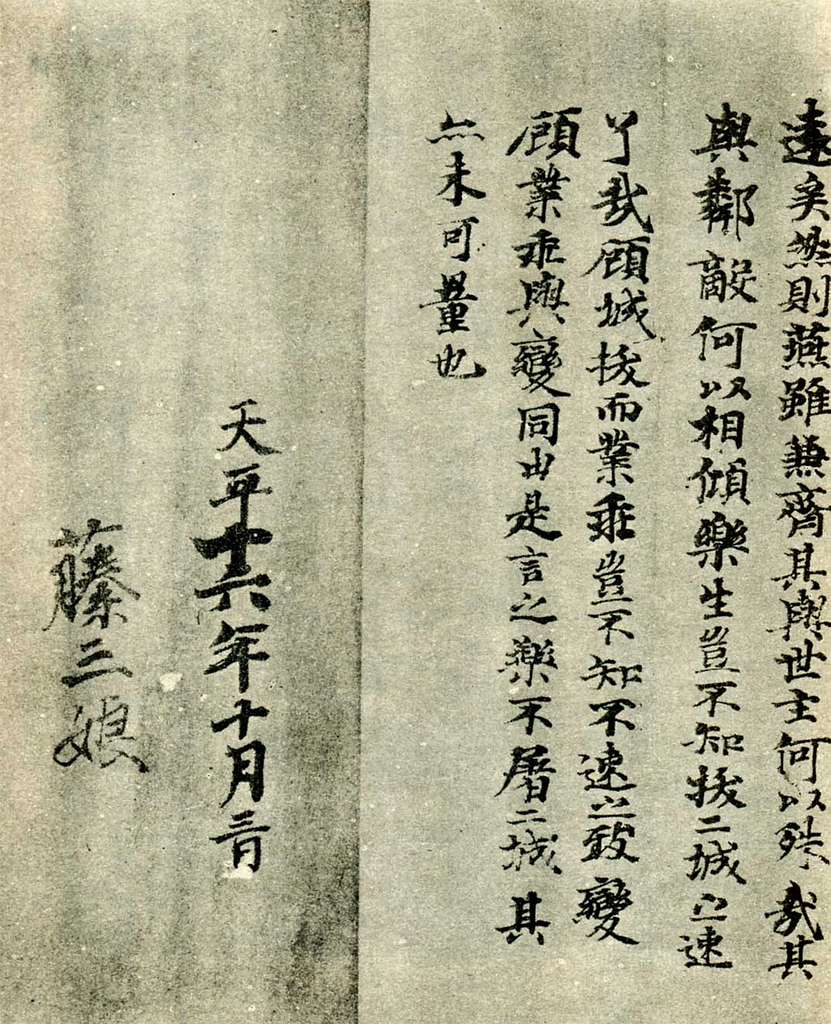 遠矣然則燕雖兼齊其與世主何以殊哉其
與鄰敵何以相傾樂生豈不知拔二城之速
了哉顧城拔而業乖豈不知不速之致變
顧業乖與變同由是言之樂不屠二城其
亦未可量也
天平十六年十月三日
藤三娘